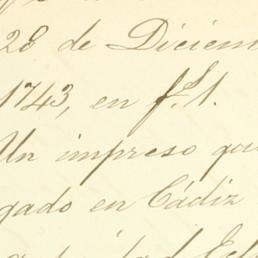 28 de Diciem
1743, en f.º 1.
Un impreso que
gado en Cádiz